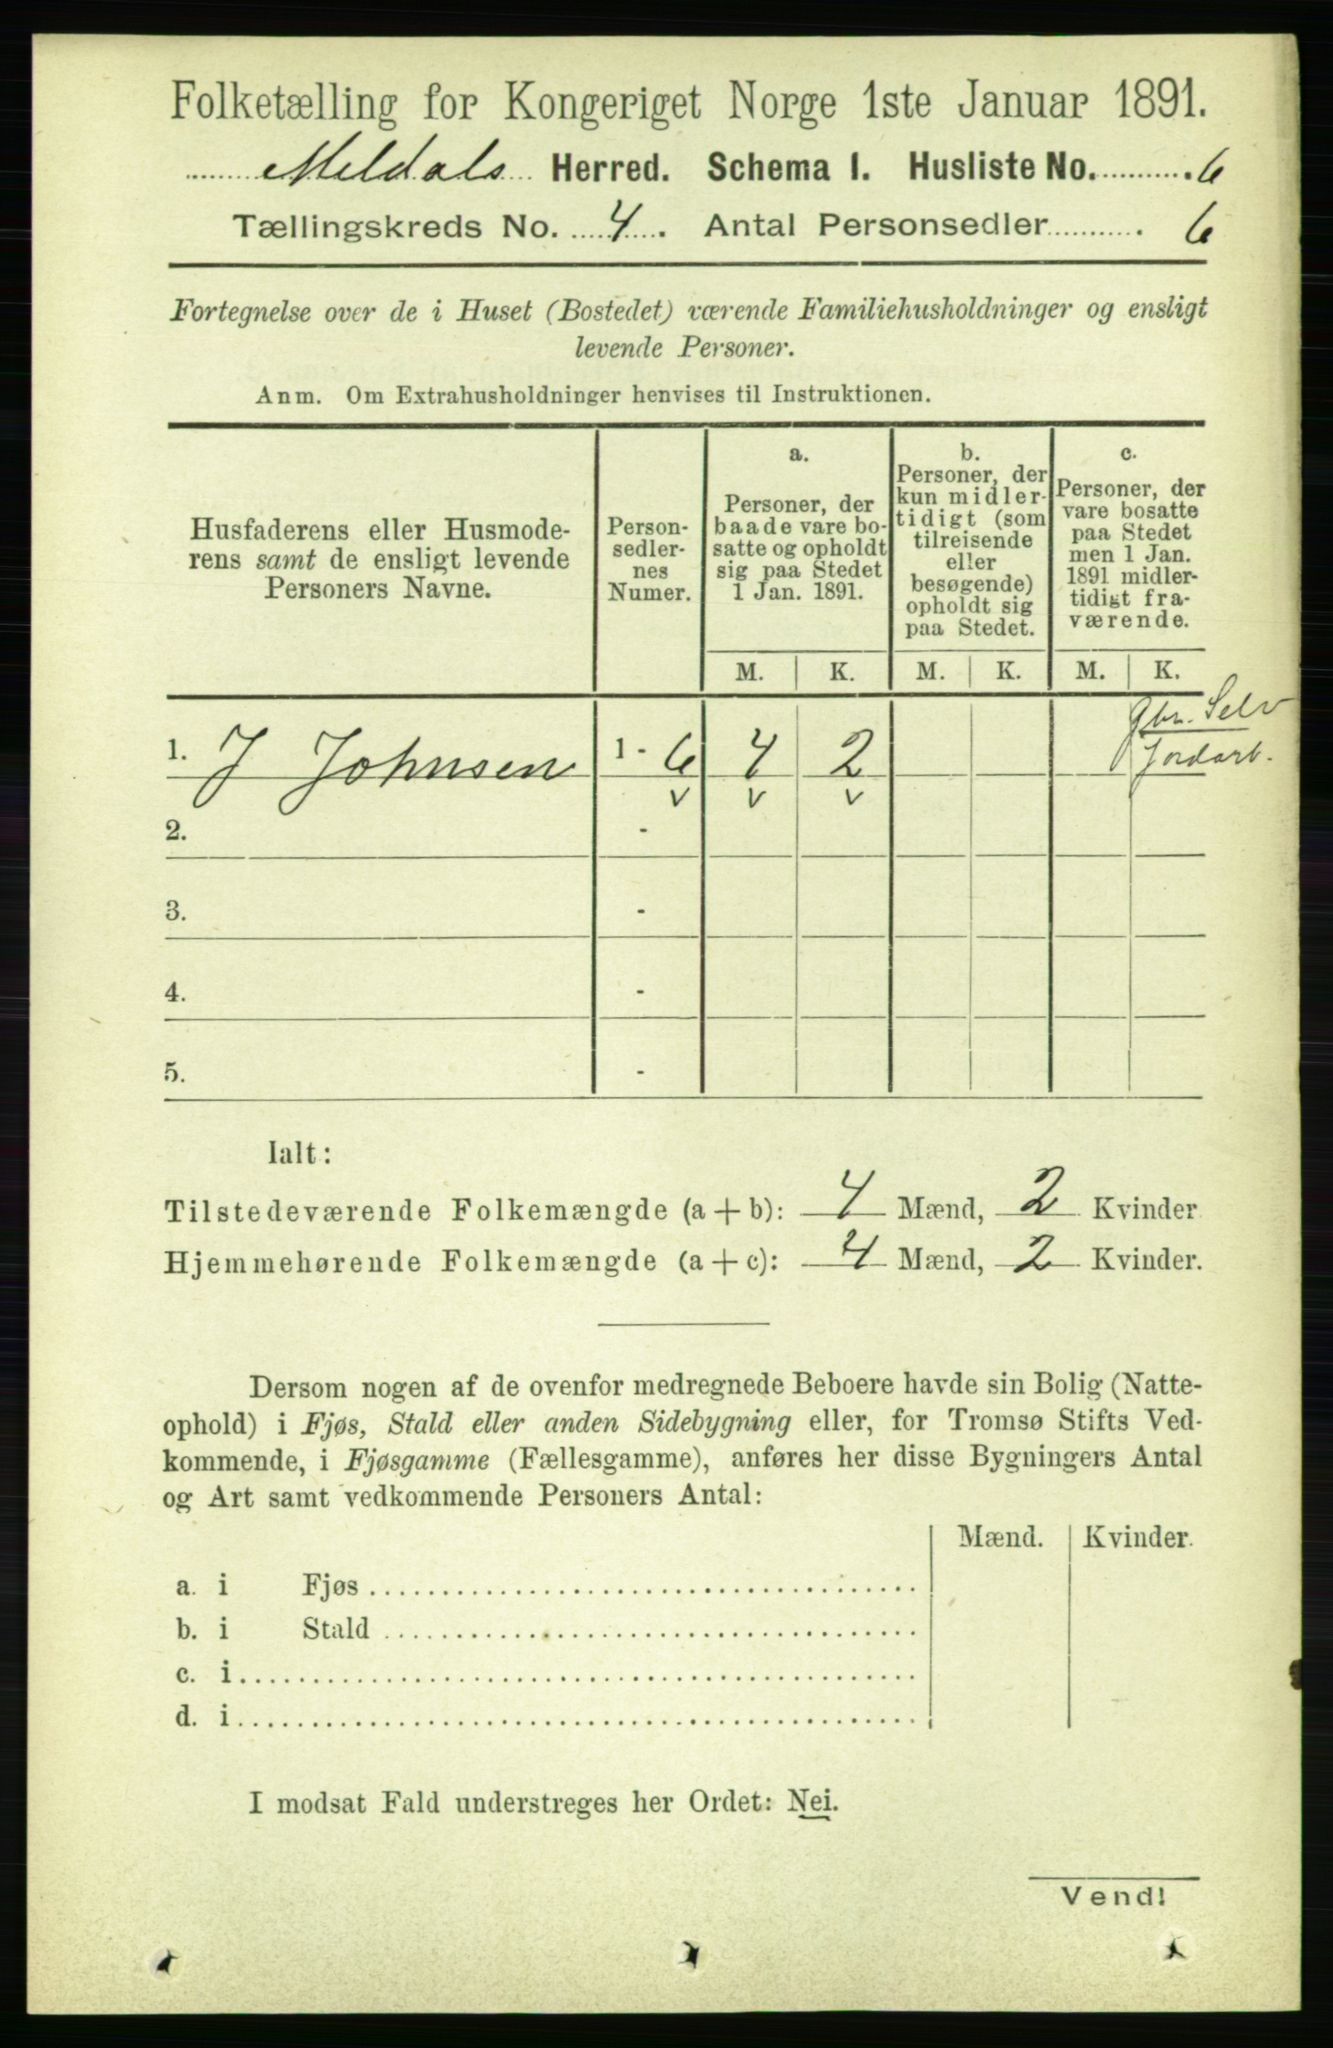 Folketælling for Kongeriget Norge 1ste Januar 1891.
Meldals Herred. Schema I. Husliste No. 6
Tællingskreds No. 4. Antal Personsedler 6
Fortegnelse over de i Huset (Bostedet) værende Familiehusholdninger og ensligt
levende Personer.
Anm. Om Extrahusholdninger henvises til Instruktionen.
Husfaderens eller Husmode-
rens samt de ensligt levende
Personers Navne.
Person-
sedler-
nes
Numer.
a.
Personer, der
baade vare bo-
satte og opholdt
sig paa Stedet
1 Jan. 1891.
b.
Personer, der
kun midler-
tidigt (som
tilreisende
eller
besøgende)
opholdt sig
paa Stedet.
c.
Personer, der
vare bosatte
paa Stedet
men 1 Jan.
1891 midler-
tidigt fra-
værende.
M. K. M. K. M. K.
Gbr. Selv
Jordarb.
1. J Johnsen 1 - 6 4 2
v v v
2. -
3. -
4. -
5. -
Ialt:
Tilstedeværende Folkemængde (a + b): 4 Mænd, 2 Kvinder
Hjemmehørende Folkemængde (a + c): 4 Mænd, 2 Kvinder.
Dersom nogen af de ovenfor medregnede Beboere havde sin Bolig (Natte-
ophold) i Fjøs, Stald eller anden Sidebygning eller, for Tromsø Stifts Ved-
kommende, i Fjøsgamme (Fællesgamme), anføres her disse Bygningers Antal
og Art samt vedkommende Personers Antal:
Mænd. Kvinder.
a. i Fjøs
b. i Stald
c. i
d. i
I modsat Fald understreges her Ordet: Nei.
Vend!